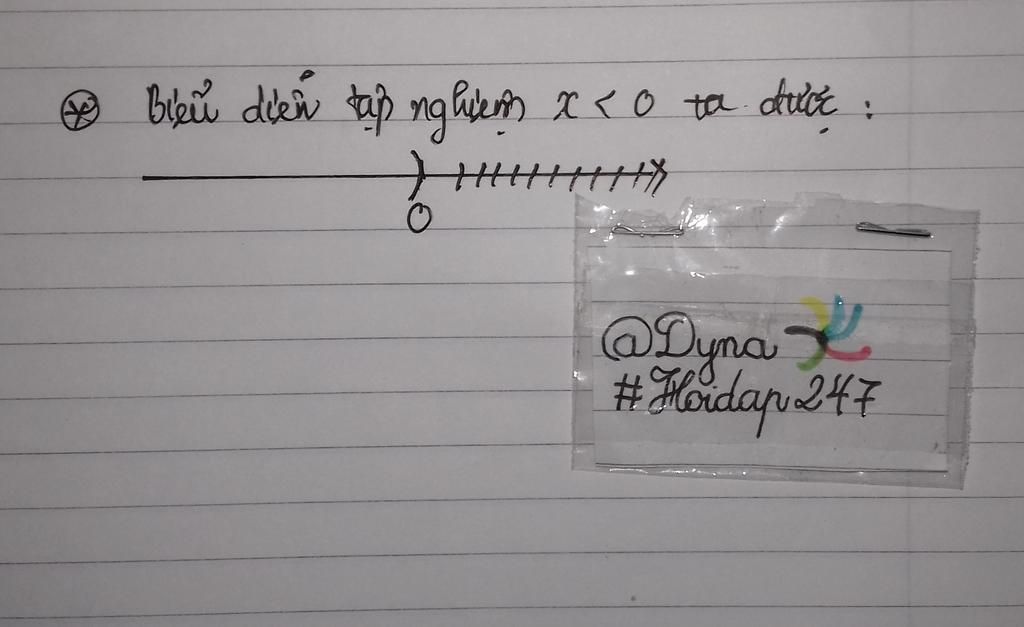 ⊛ Biểu diễn tập nghiệm x < 0 ta được :
0
@Dyna
#Hoidap247